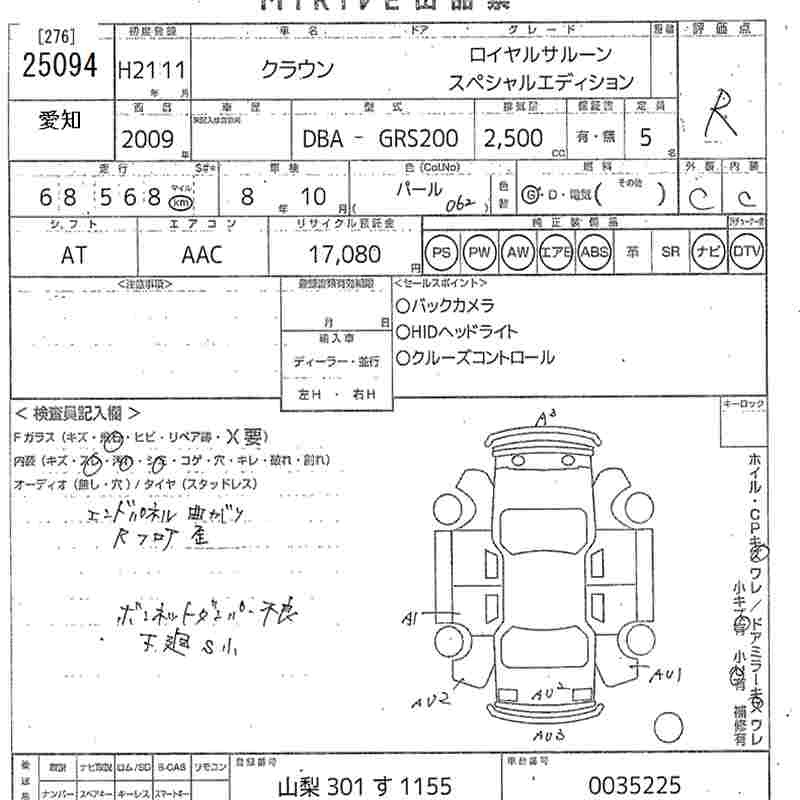 [276]
25094
愛知
初度登録
H21 11
年 月
車名
クラウン
ドア
グレード
ロイヤルサルーン
スペシャルエディション
評価点
R
西暦
2009
年
車歴
型式
DBA - GRS200
排気量
2,500
CC
保証書
有・無
定員
5
名
走行
S#*
68 568
マイル
km
車検
8 年 10 月
色 (Col.No)
パール
( 062 )
色替
燃料
G・D・電気( その他 )
外装
C
内装
C
シフト
AT
エアコン
AAC
リサイクル預託金
17,080
円
純正装備品
PS PW AW エアB ABS 革 SR ナビ DTV
<注意事項>
登録書類有効期限
月 日
輸入車
ディーラー・並行
左H ・ 右H
<セールスポイント>
○バックカメラ
○HIDヘッドライト
○クルーズコントロール
< 検査員記入欄 >
Fガラス (キズ・飛石・ヒビ・リペア跡・X要)
内装 (キズ・スレ・汚れ・シミ・コゲ・穴・キレ・破れ・割れ)
オーディオ (無し・穴) / タイヤ (スタッドレス)
エンドパネル 曲がり
Rフロア 歪
ボンネットダンパー不良
下廻 S小
キーロック
ホイル・CPキズワレ/ドアミラーキズワレ
小キズ有 小凹有 補修有
A3
A1
AU2
AU2
AU1
AU3
取説 ナビ取説 ロム/SD B-CAS リモコン
ナンバー スペアキー キーレス スマートキー
登録番号
山梨 301 す 1155
車台番号
0035225